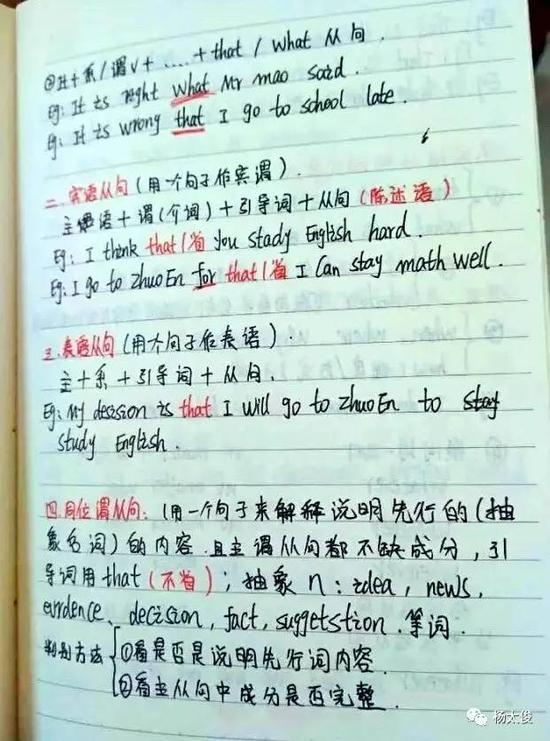 ②It + 系/谓v + .... + that / What 从句.
Eg: It is right what Mr mao said.
Eg: It is wrong that I go to school late.
二. 宾语从句 (用一个句子作宾谓).
主谓语 + 谓(介词) + 引导词 + 从句 (陈述语)
Eg: I think that/省 you stady English hard.
Eg: I go to zhuoEn for that/省 I Can stay math well.
三. 表语从句 (用个句子作表语).
主 + 系 + 引导词 + 从句.
Eg: My decision is that I will go to zhuoEn to stay
study English.
四. 同位谓从句: (用一个句子来解释说明先行的(抽
象名词) 的内容. 且主谓从句都不缺成分, 引
导词用that (不省); 抽象n: idea, news,
evidence、decision, fact, suggetstion. 等词.
判别方法 ①看是否是说明先行词内容.
②看主从句中成分是否完整.
杨太俊